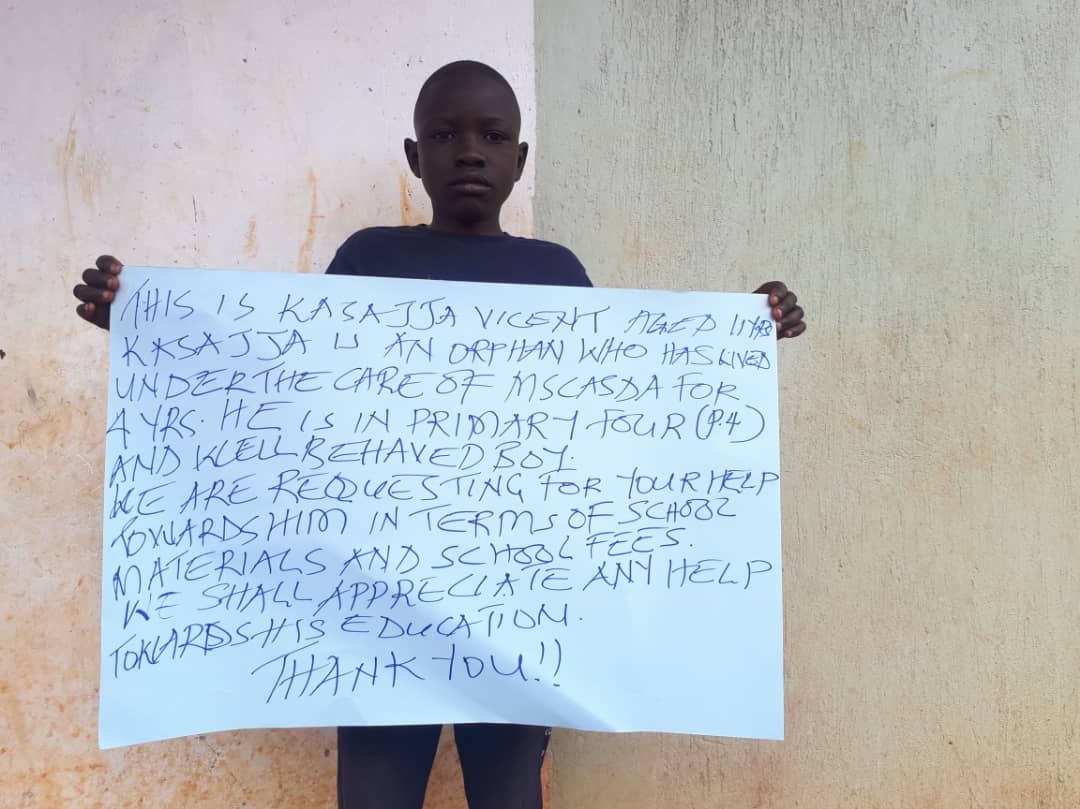 THIS IS KASAJJA VICENT AGED 11YRS
KASAJJA IS AN ORPHAN WHO HAS LIVED
UNDER THE CARE OF MSCASDA FOR
4 YRS. HE IS IN PRIMARY FOUR (P.4)
AND WELL BEHAVED BOY.
WE ARE REQUESTING FOR YOUR HELP
TOWARDS HIM IN TERMS OF SCHOOL
MATERIALS AND SCHOOL FEES.
WE SHALL APPRECIATE ANY HELP
TOWARDS HIS EDUCATION.
THANK YOU!!